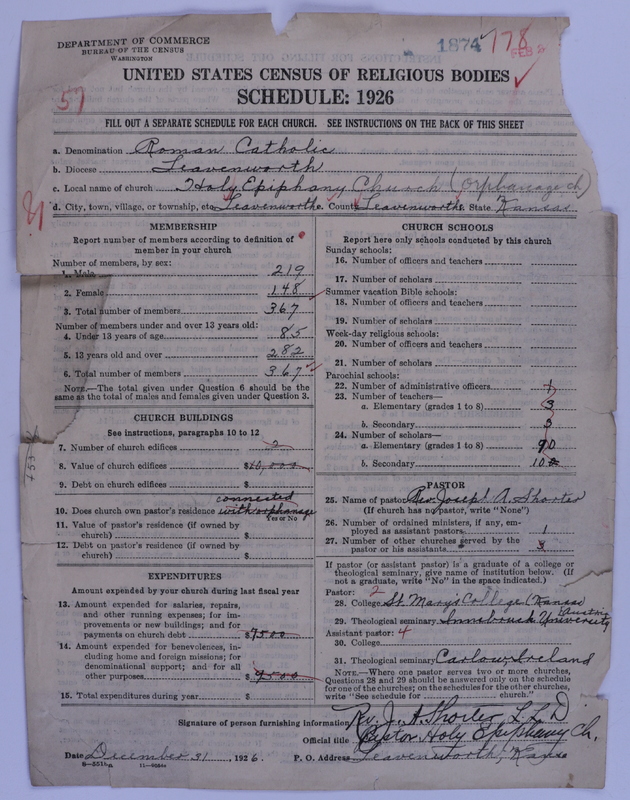 DEPARTMENT OF COMMERCE
BUREAU OF THE CENSUS
WASHINGTON
1874
778
FEB
UNITED STATES CENSUS OF RELIGIOUS BODIES
SCHEDULE: 1926
57
FILL OUT A SEPARATE SCHEDULE FOR EACH CHURCH. SEE INSTRUCTIONS ON THE BACK OF THIS SHEET
a. Denomination Roman Catholic
b. Diocese Leavenworth
c. Local name of church Holy Epiphany Church (orphanage ch)
d. City, town, village, or township, etc. Leavenworth County Leavenworth State Kansas
MEMBERSHIP
Report number of members according to definition of
member in your church
Number of members, by sex:
1. Male 219
2. Female 148
3. Total number of members 367
Number of members under and over 13 years old:
4. Under 13 years of age 85
5. 13 years old and over 282
6. Total number of members 367
NOTE.—The total given under Question 6 should be the
same as the total of males and females given under Question 3.
CHURCH BUILDINGS
See instructions, paragraphs 10 to 12
7. Number of church edifices 2
8. Value of church edifices $10,000
9. Debt on church edifices $
connected
10. Does church own pastor's residence with orphanage
Yes or No
11. Value of pastor's residence (if owned by
church) $
12. Debt on pastor's residence (if owned by
church) $
EXPENDITURES
Amount expended by your church during last fiscal year
13. Amount expended for salaries, repairs,
and other running expenses; for im-
provements or new buildings; and for
payments on church debt $7500
14. Amount expended for benevolences, in-
cluding home and foreign missions; for
denominational support; and for all
other purposes $9500
15. Total expenditures during year $
CHURCH SCHOOLS
Report here only schools conducted by this church
Sunday schools:
16. Number of officers and teachers
17. Number of scholars
Summer vacation Bible schools:
18. Number of officers and teachers
19. Number of scholars
Week-day religious schools:
20. Number of officers and teachers
21. Number of scholars
Parochial schools:
22. Number of administrative officers 1
23. Number of teachers—
a. Elementary (grades 1 to 8) 3
b. Secondary 3
24. Number of scholars—
a. Elementary (grades 1 to 8) 90
b. Secondary 100
PASTOR
25. Name of pastor Rev. Joseph A. Shorter
(If church has no pastor, write "None")
26. Number of ordained ministers, if any, em-
ployed as assistant pastors 1
27. Number of other churches served by the
pastor or his assistants 3
If pastor (or assistant pastor) is a graduate of a college or
theological seminary, give name of institution below. (If
not a graduate, write "No" in the space indicated.)
Pastor: 2
28. College St. Mary's College (Kansas
29. Theological seminary Innsbruck University Austria
Assistant pastor: 4
30. College
31. Theological seminary Carlow Ireland
NOTE.—Where one pastor serves two or more churches,
Questions 28 and 29 should be answered only on the schedule
for one of the churches; on the schedules for the other churches,
write "See schedule for church."
Signature of person furnishing information Rev. J. A. Shorter L.L.D
Official title Pastor Holy Epiphany Ch.
Date December 31, 1926. P. O. Address Leavenworth, Kans